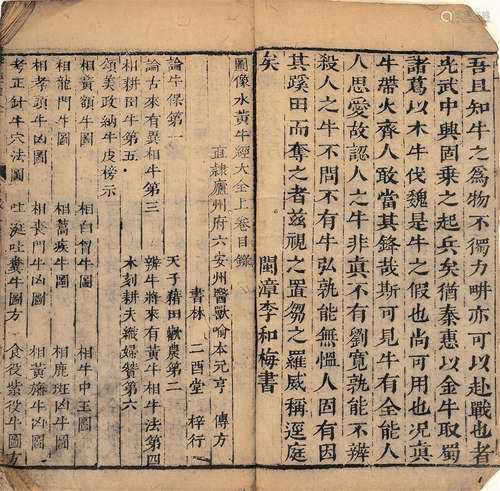 吾且知牛之為物不獨力畊亦可以赴戰也者
光武中興固乗之起兵矣猶秦惠以金牛取蜀
諸葛以木牛伐魏是牛之假也尚可用也况真
牛帶火齊人敢當其鋒哉斯可見牛有全能人
人思愛故認人之牛非真不有劉寛孰能不辨
殺人之牛不問不有牛弘孰能無慍人固有因
其蹊田而奪之者兹視之置芻之羅威稱逕庭
矣 閩漳李和梅書
圖像水黄牛經大全上卷目錄
直隷廬州府六安州醫獸喻本元亨 傳方
書林 二酉堂 梓行
論牛保第一 天子藉田歡農第二
論古來有異相牛第三 辨牛將來有黄牛相牛法第四
相耕田牛第五 木刻耕夫織婦贊第六
頌美政納牛皮榜示
相黄額牛圖 相白牛圖 相牛中王圖
相龍門牛圖 相疾牛圖 相鹿斑凶牛圖
相孝頭牛凶圖 相喪門牛凶圖 相黄旛牛凶圖
考正針牛穴法圖 吐涎吐糞牛圖方 食役柴役牛圖方